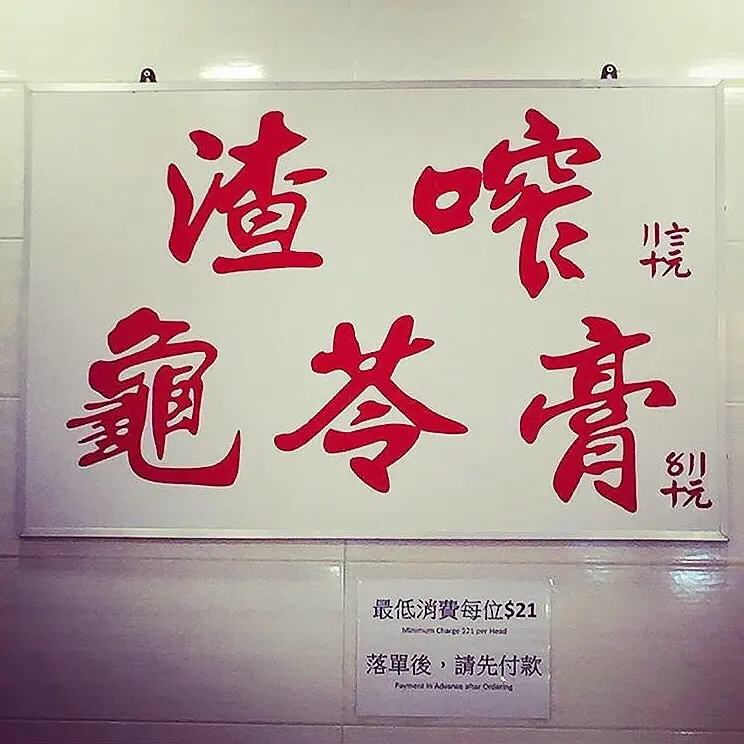 渣咋
〢〨
十元
龜苓膏
〥〢
十元
最低消費每位$21
Minimum Charge $21 per Head
落單後，請先付款
Payment in Advance after Ordering